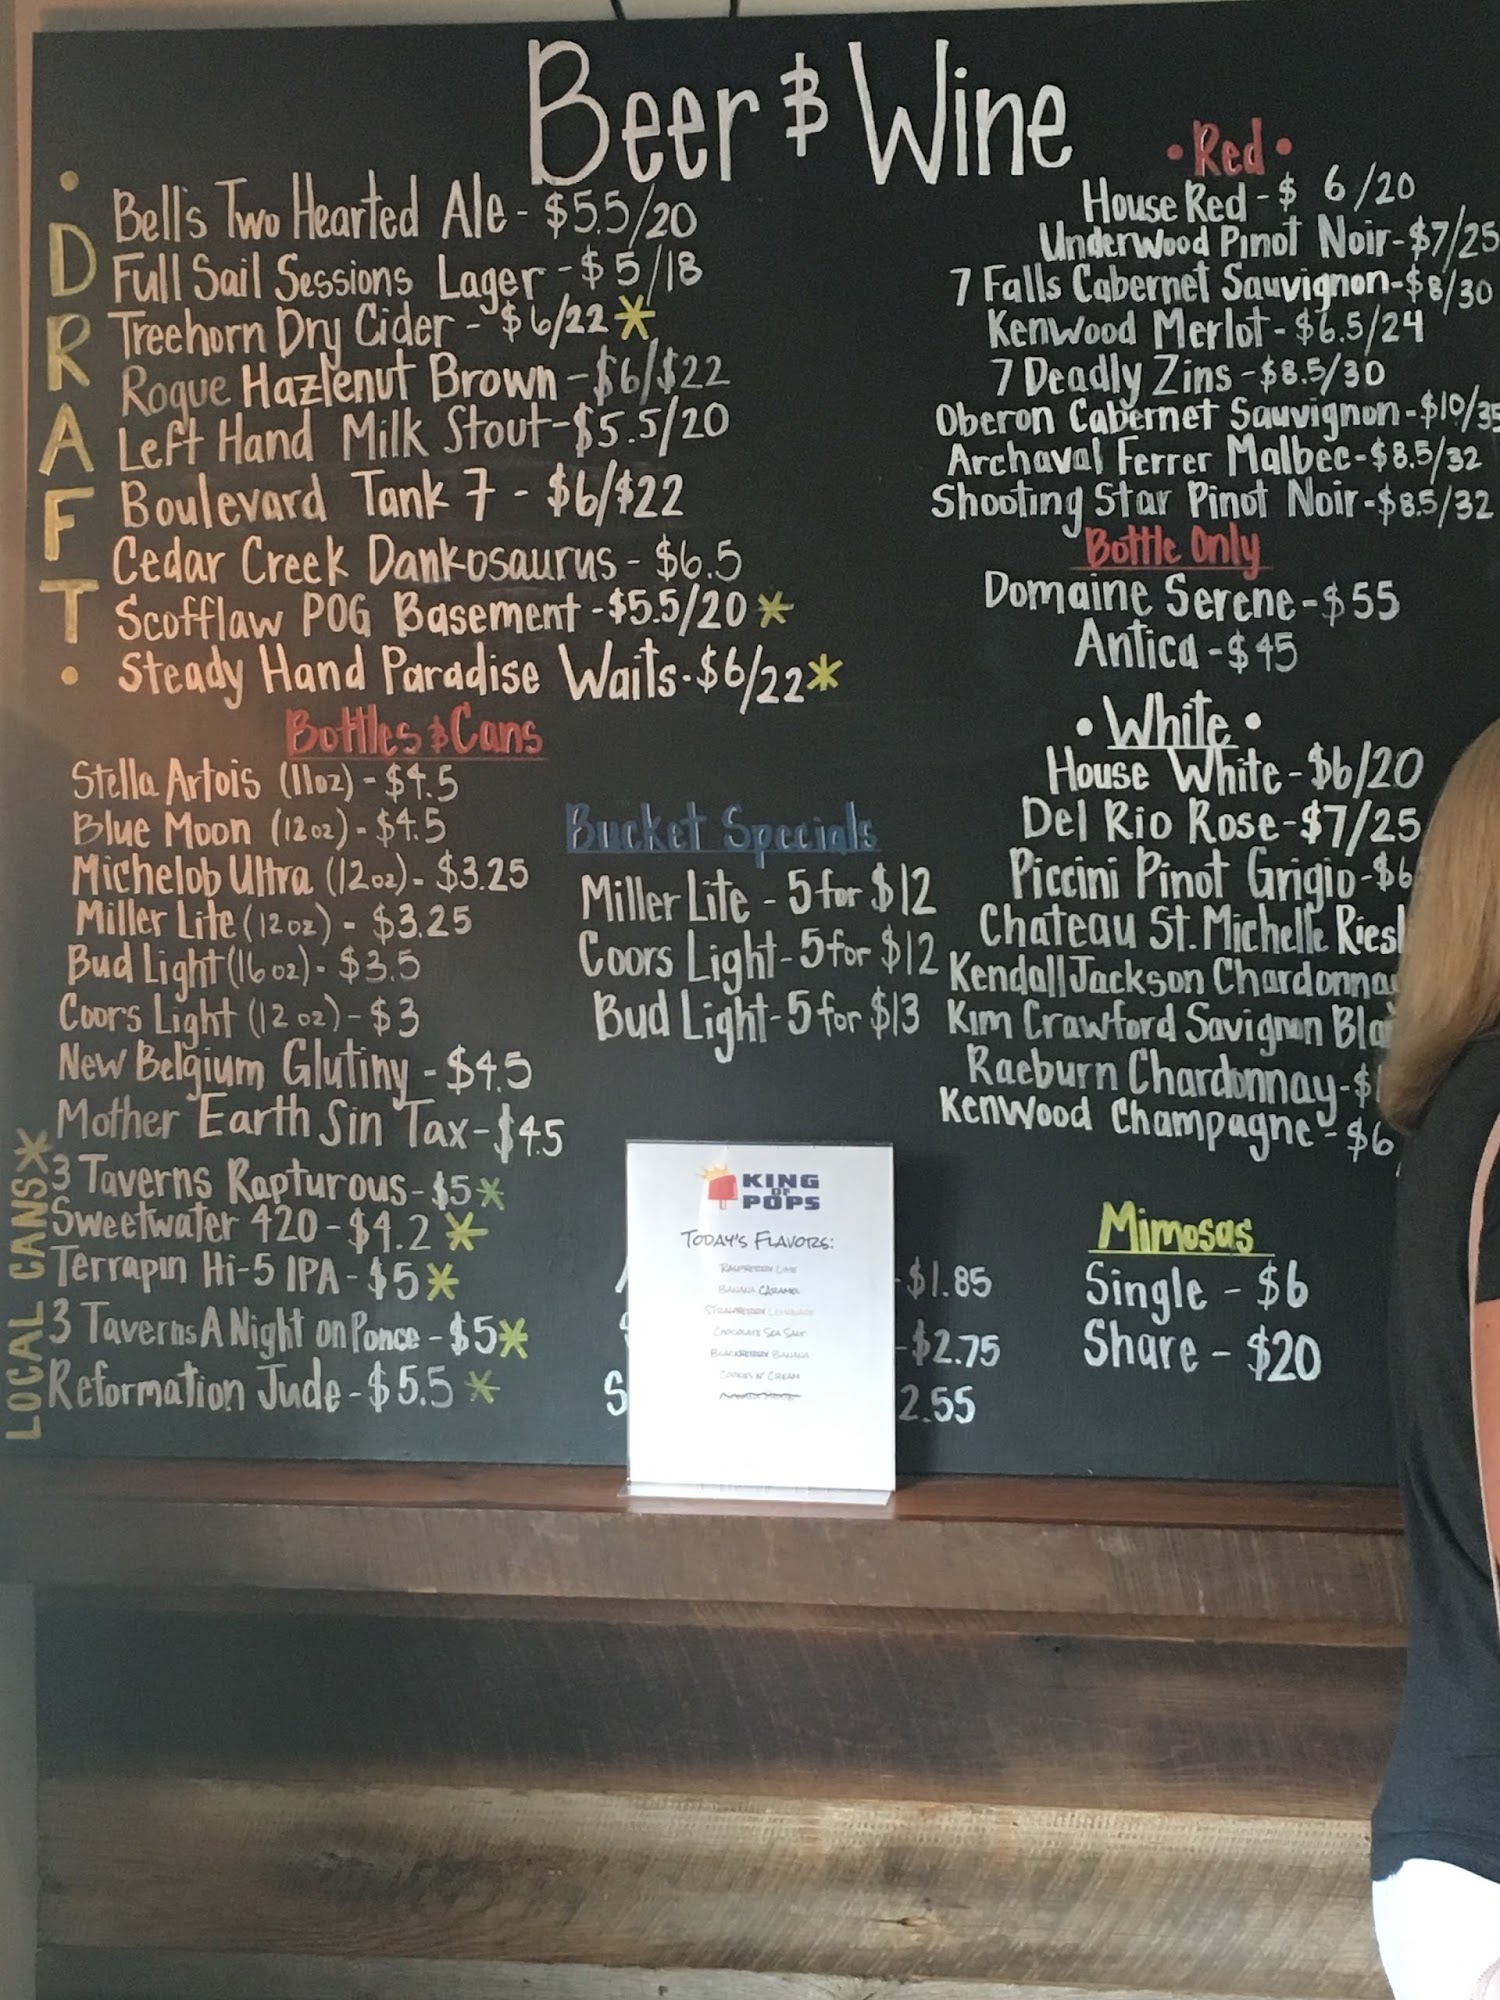 Beer & Wine
DRAFT
Bell's Two Hearted Ale - $5.5/20
Full Sail Sessions Lager - $5/18
Treehorn Dry Cider - $6/22 *
Rogue Hazlenut Brown - $6/$22
Left Hand Milk Stout - $5.5/20
Boulevard Tank 7 - $6/$22
Cedar Creek Dankosaurus - $6.5
Scofflaw POG Basement - $5.5/20 *
Steady Hand Paradise Waits - $6/22 *
Bottles & Cans
Stella Artois (11oz) - $4.5
Blue Moon (12oz) - $4.5
Michelob Ultra (12oz) - $3.25
Miller Lite (12oz) - $3.25
Bud Light (16oz) - $3.5
Coors Light (12oz) - $3
New Belgium Glutiny - $4.5
Mother Earth Sin Tax - $4.5
LOCAL CANS *
3 Taverns Rapturous - $5 *
Sweetwater 420 - $4.2 *
Terrapin Hi-5 IPA - $5 *
3 Taverns A Night on Ponce - $5 *
Reformation Jude - $5.5 *
Bucket Specials
Miller Lite - 5 for $12
Coors Light - 5 for $12
Bud Light - 5 for $13
• Red •
House Red - $ 6/20
Underwood Pinot Noir - $7/25
7 Falls Cabernet Sauvignon - $8/30
Kenwood Merlot - $6.5/24
7 Deadly Zins - $8.5/30
Oberon Cabernet Sauvignon - $10/35
Archaval Ferrer Malbec - $8.5/32
Shooting Star Pinot Noir - $8.5/32
Bottle Only
Domaine Serene - $55
Antica - $45
• White •
House White - $6/20
Del Rio Rose - $7/25
Piccini Pinot Grigio - $6
Chateau St. Michelle Riesl
Kendall Jackson Chardonna
Kim Crawford Savignon Bla
Raeburn Chardonnay - $
Kenwood Champagne - $6
Mimosas
Single - $6
Share - $20
KING OF POPS
TODAY'S FLAVORS:
RASPBERRY LIME
BANANA CARAMEL
STRAWBERRY LEMONADE
CHOCOLATE SEA SALT
BLACKBERRY BANANA
COOKIES N' CREAM
- $1.85
- $2.75
S
2.55